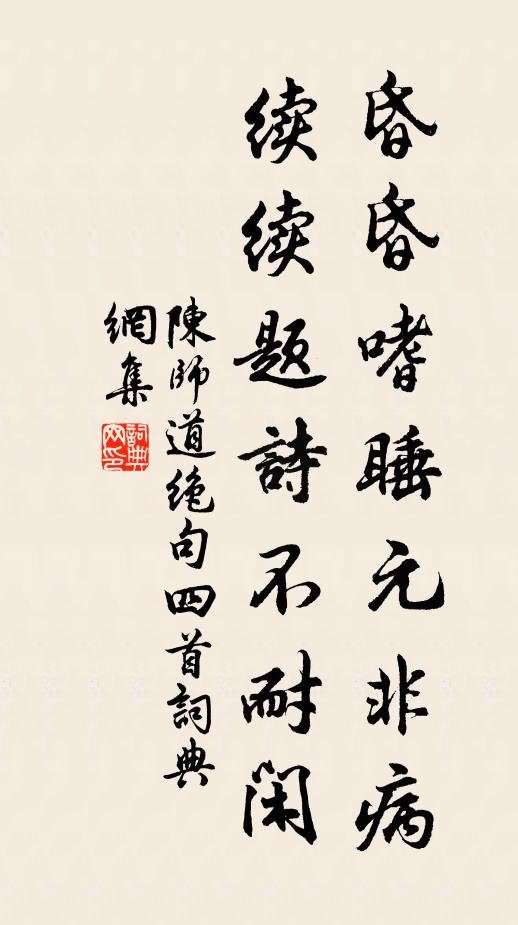 昏昏嗜睡元非病
续续题詩不耐闲
陳師道绝句四首詞典
網集
詞典
网印